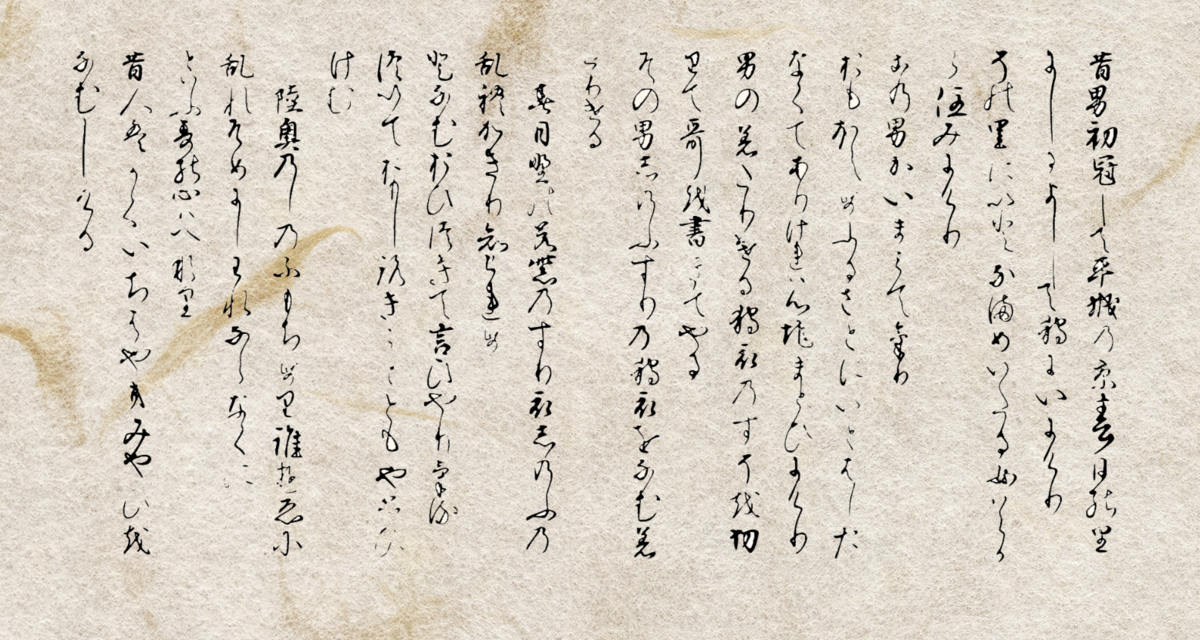 昔男初冠して平城の京春日の里
にしるよしして狩にいにけり
その里にいとなまめいたる女はらか
ら住みにけり
この男かいまみてけり
おもほえすふるさとにいとはした
なくてありけれは心地まとひにけり
男の着たりける狩衣のすそを切
りて哥を書きてやる
その男志のふすりの狩衣をなむ着
たりける
春日野の若紫のすり衣志のふの
乱れかきり知られす
となむおひつきて言ひやりける
ついておもしろきことともや思ひ
けむ
陸奥のしのふもちすり誰ゆゑに
乱れそめにし我ならなくに
といふ哥の心はへなり
昔人はかくいちはやきみやひを
なむしける